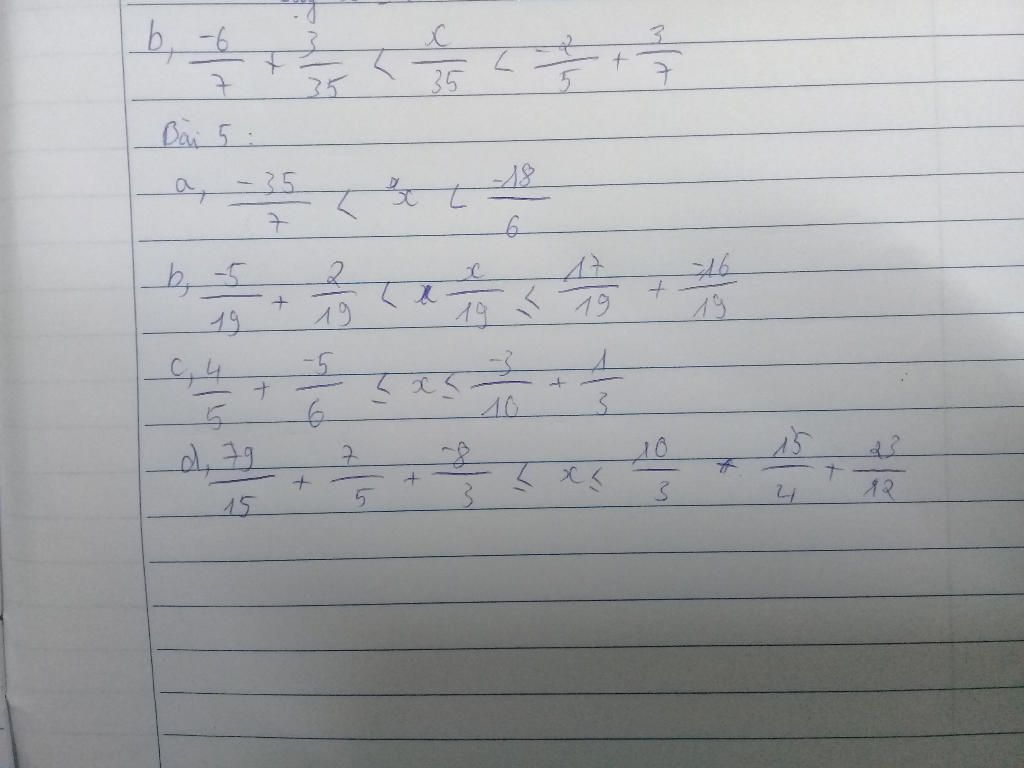 b, -6/7 + 3/35 < x/35 < -2/5 + 3/7
Bài 5 :
a, -35/7 < x < -18/6
b, -5/19 + 2/19 < x/19 ≤ 17/19 + -16/19
c, 4/5 + -5/6 ≤ x ≤ -3/10 + 1/3
d, 79/15 + 7/5 + -8/3 ≤ x ≤ 10/3 + 15/4 + 23/12